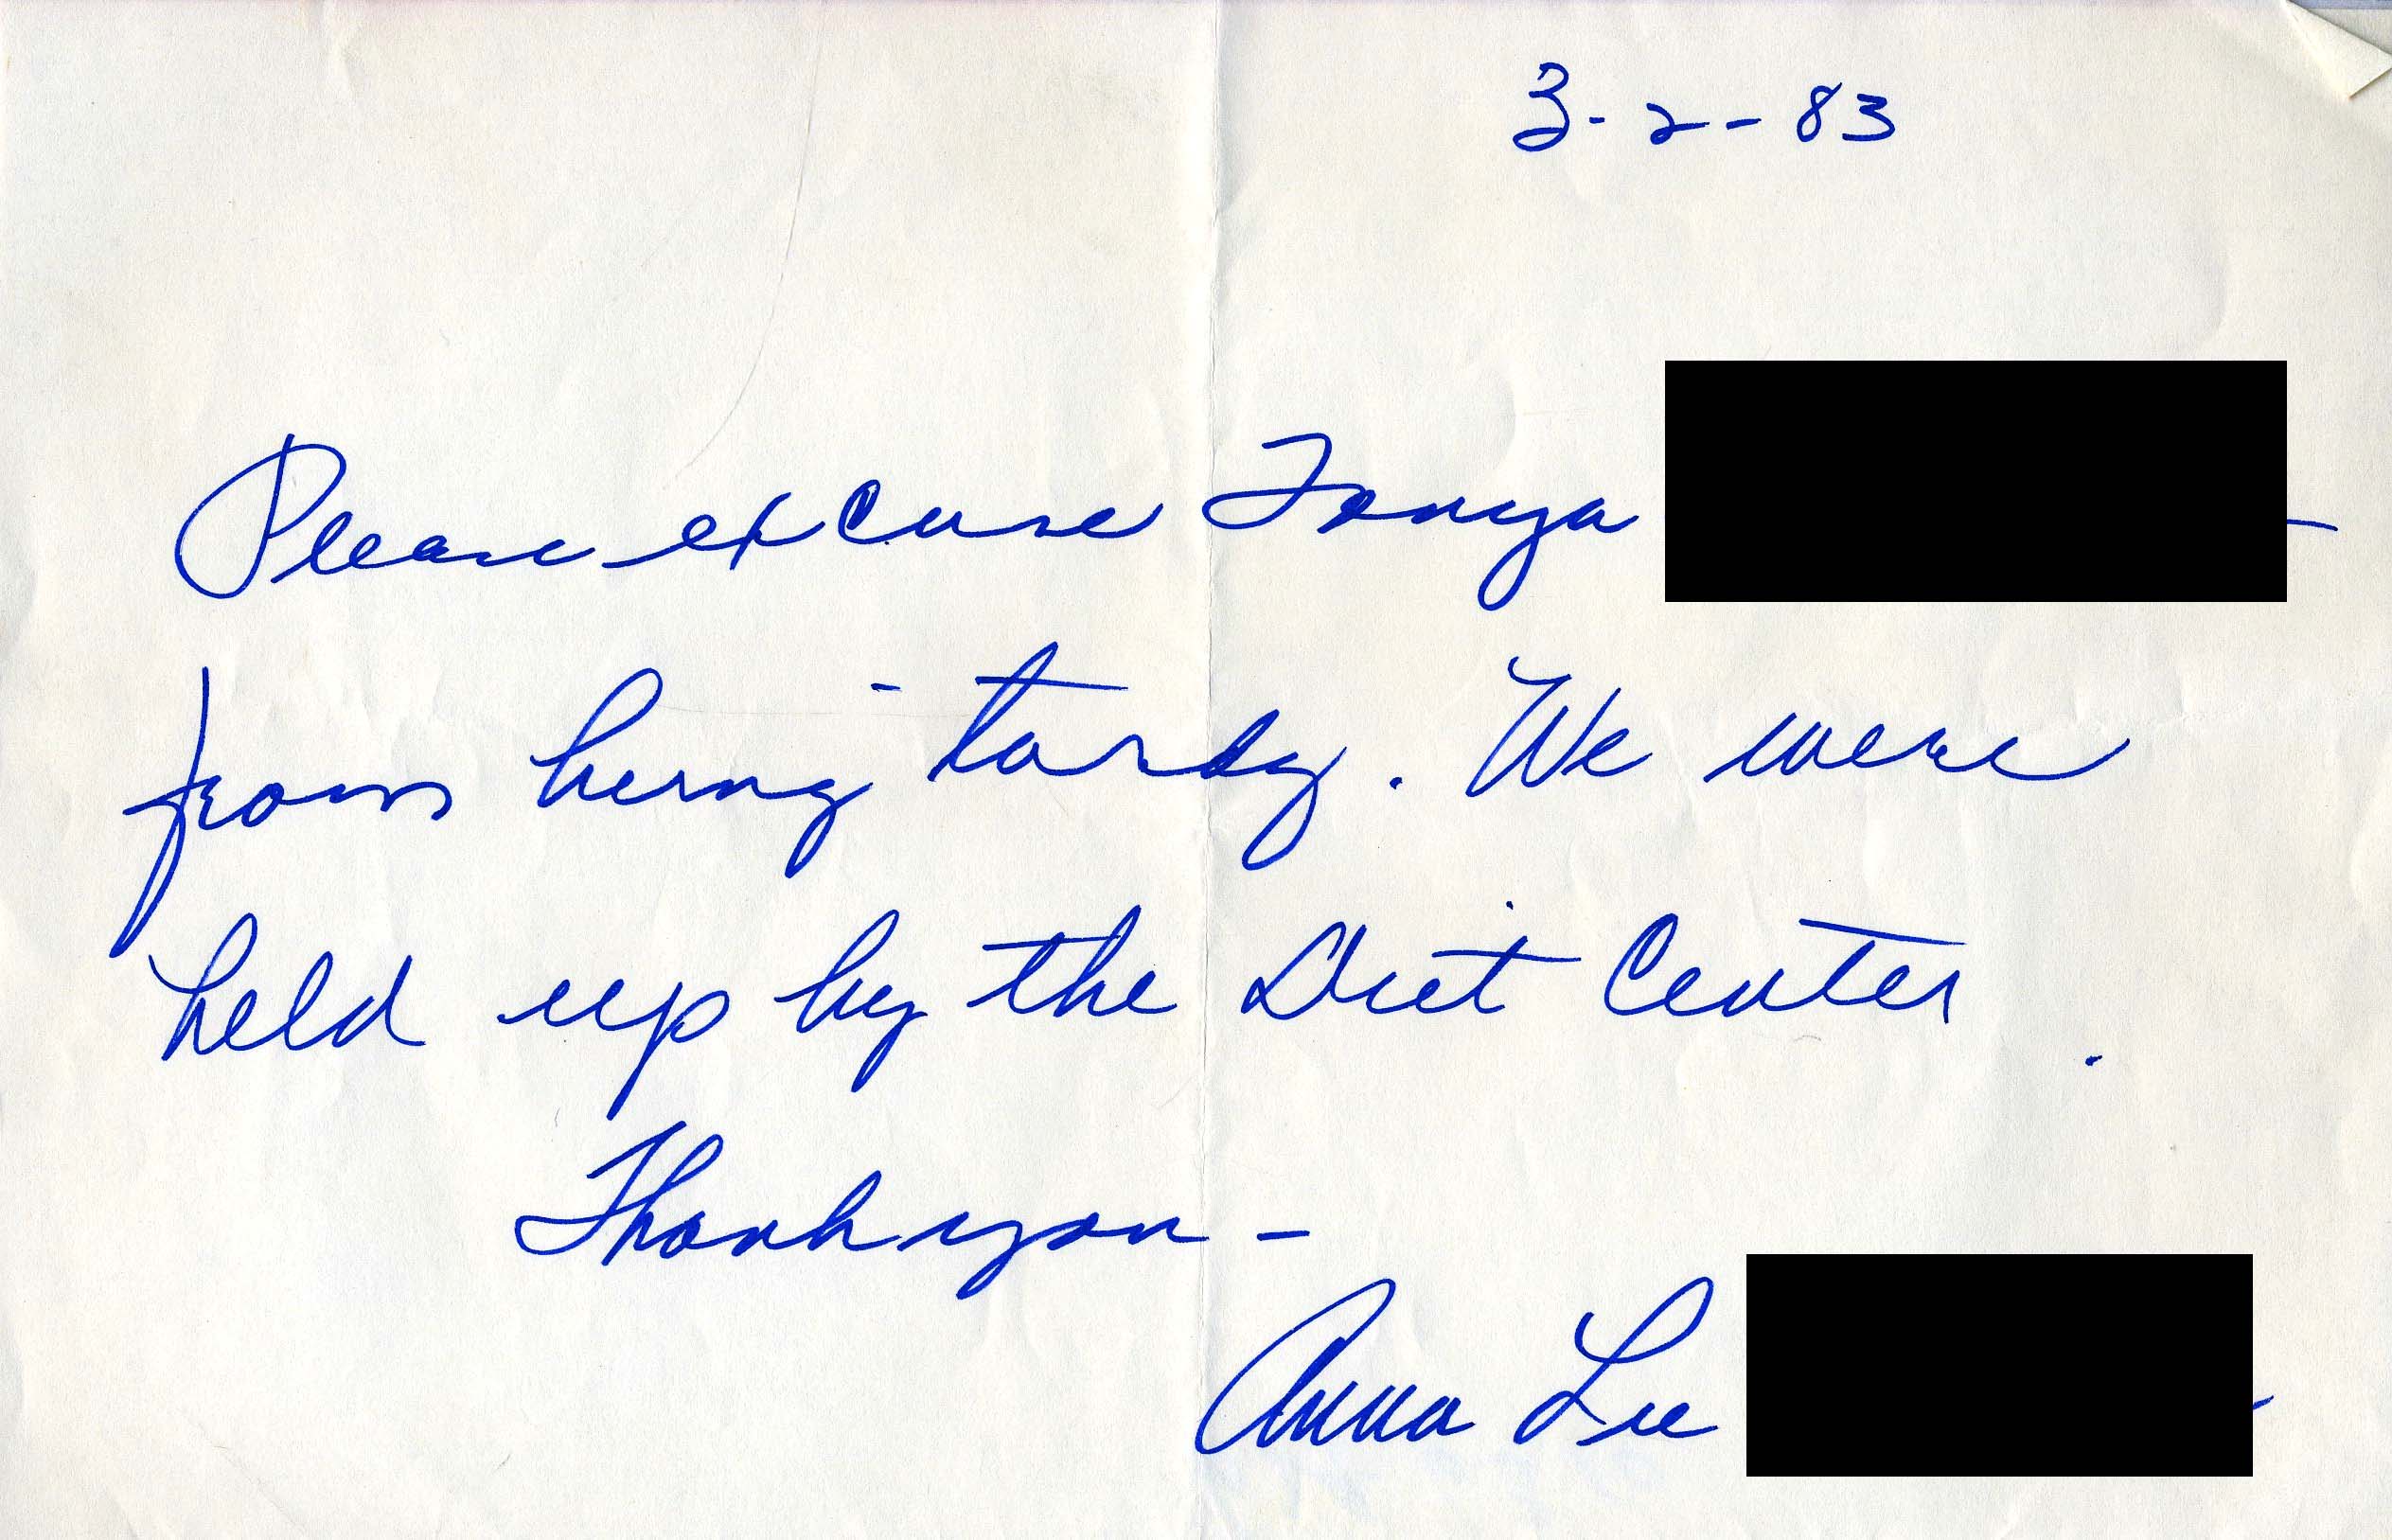 3-2-83
Please excuse Tonya
from being tardy. We were
held up by the Diet Center.
Thank you -
Anna Lee